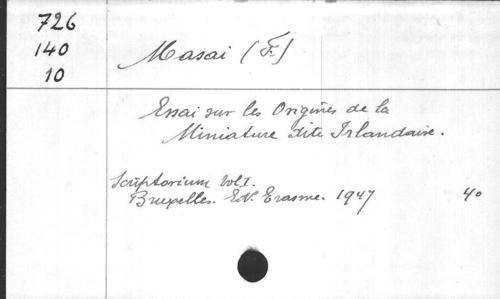 726
140
10
Masai (F.)
Essai sur les Origines de la
Miniature dite Irlandaise.
Scriptorium Vol I.
Bruxelles. Ed. Erasme. 1947 40